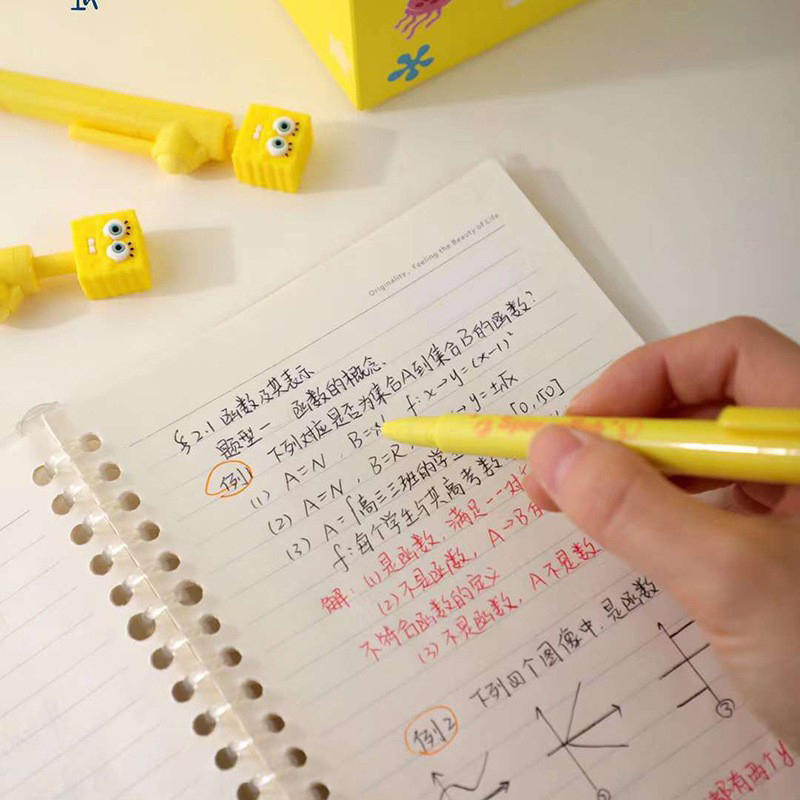 Originality, Feeling the Beauty of Life
§2.1 函数及其表示
题型一 函数的概念、
例1 下列对应是否为集合A到集合B的函数?
(1) A=N, B= f: x→y=(x-1)²
(2) A=N, B=R, →y=±√x
(3) A={高三三班的学 [0,150]
f: 每个学生与其高考数
解: (1)是函数, 满足一一对
(2)不是函数, A→B
不符合函数的定义
(3)不是函数, A不是数
例2 下列四个图像中, 是函数
③
都有两个y